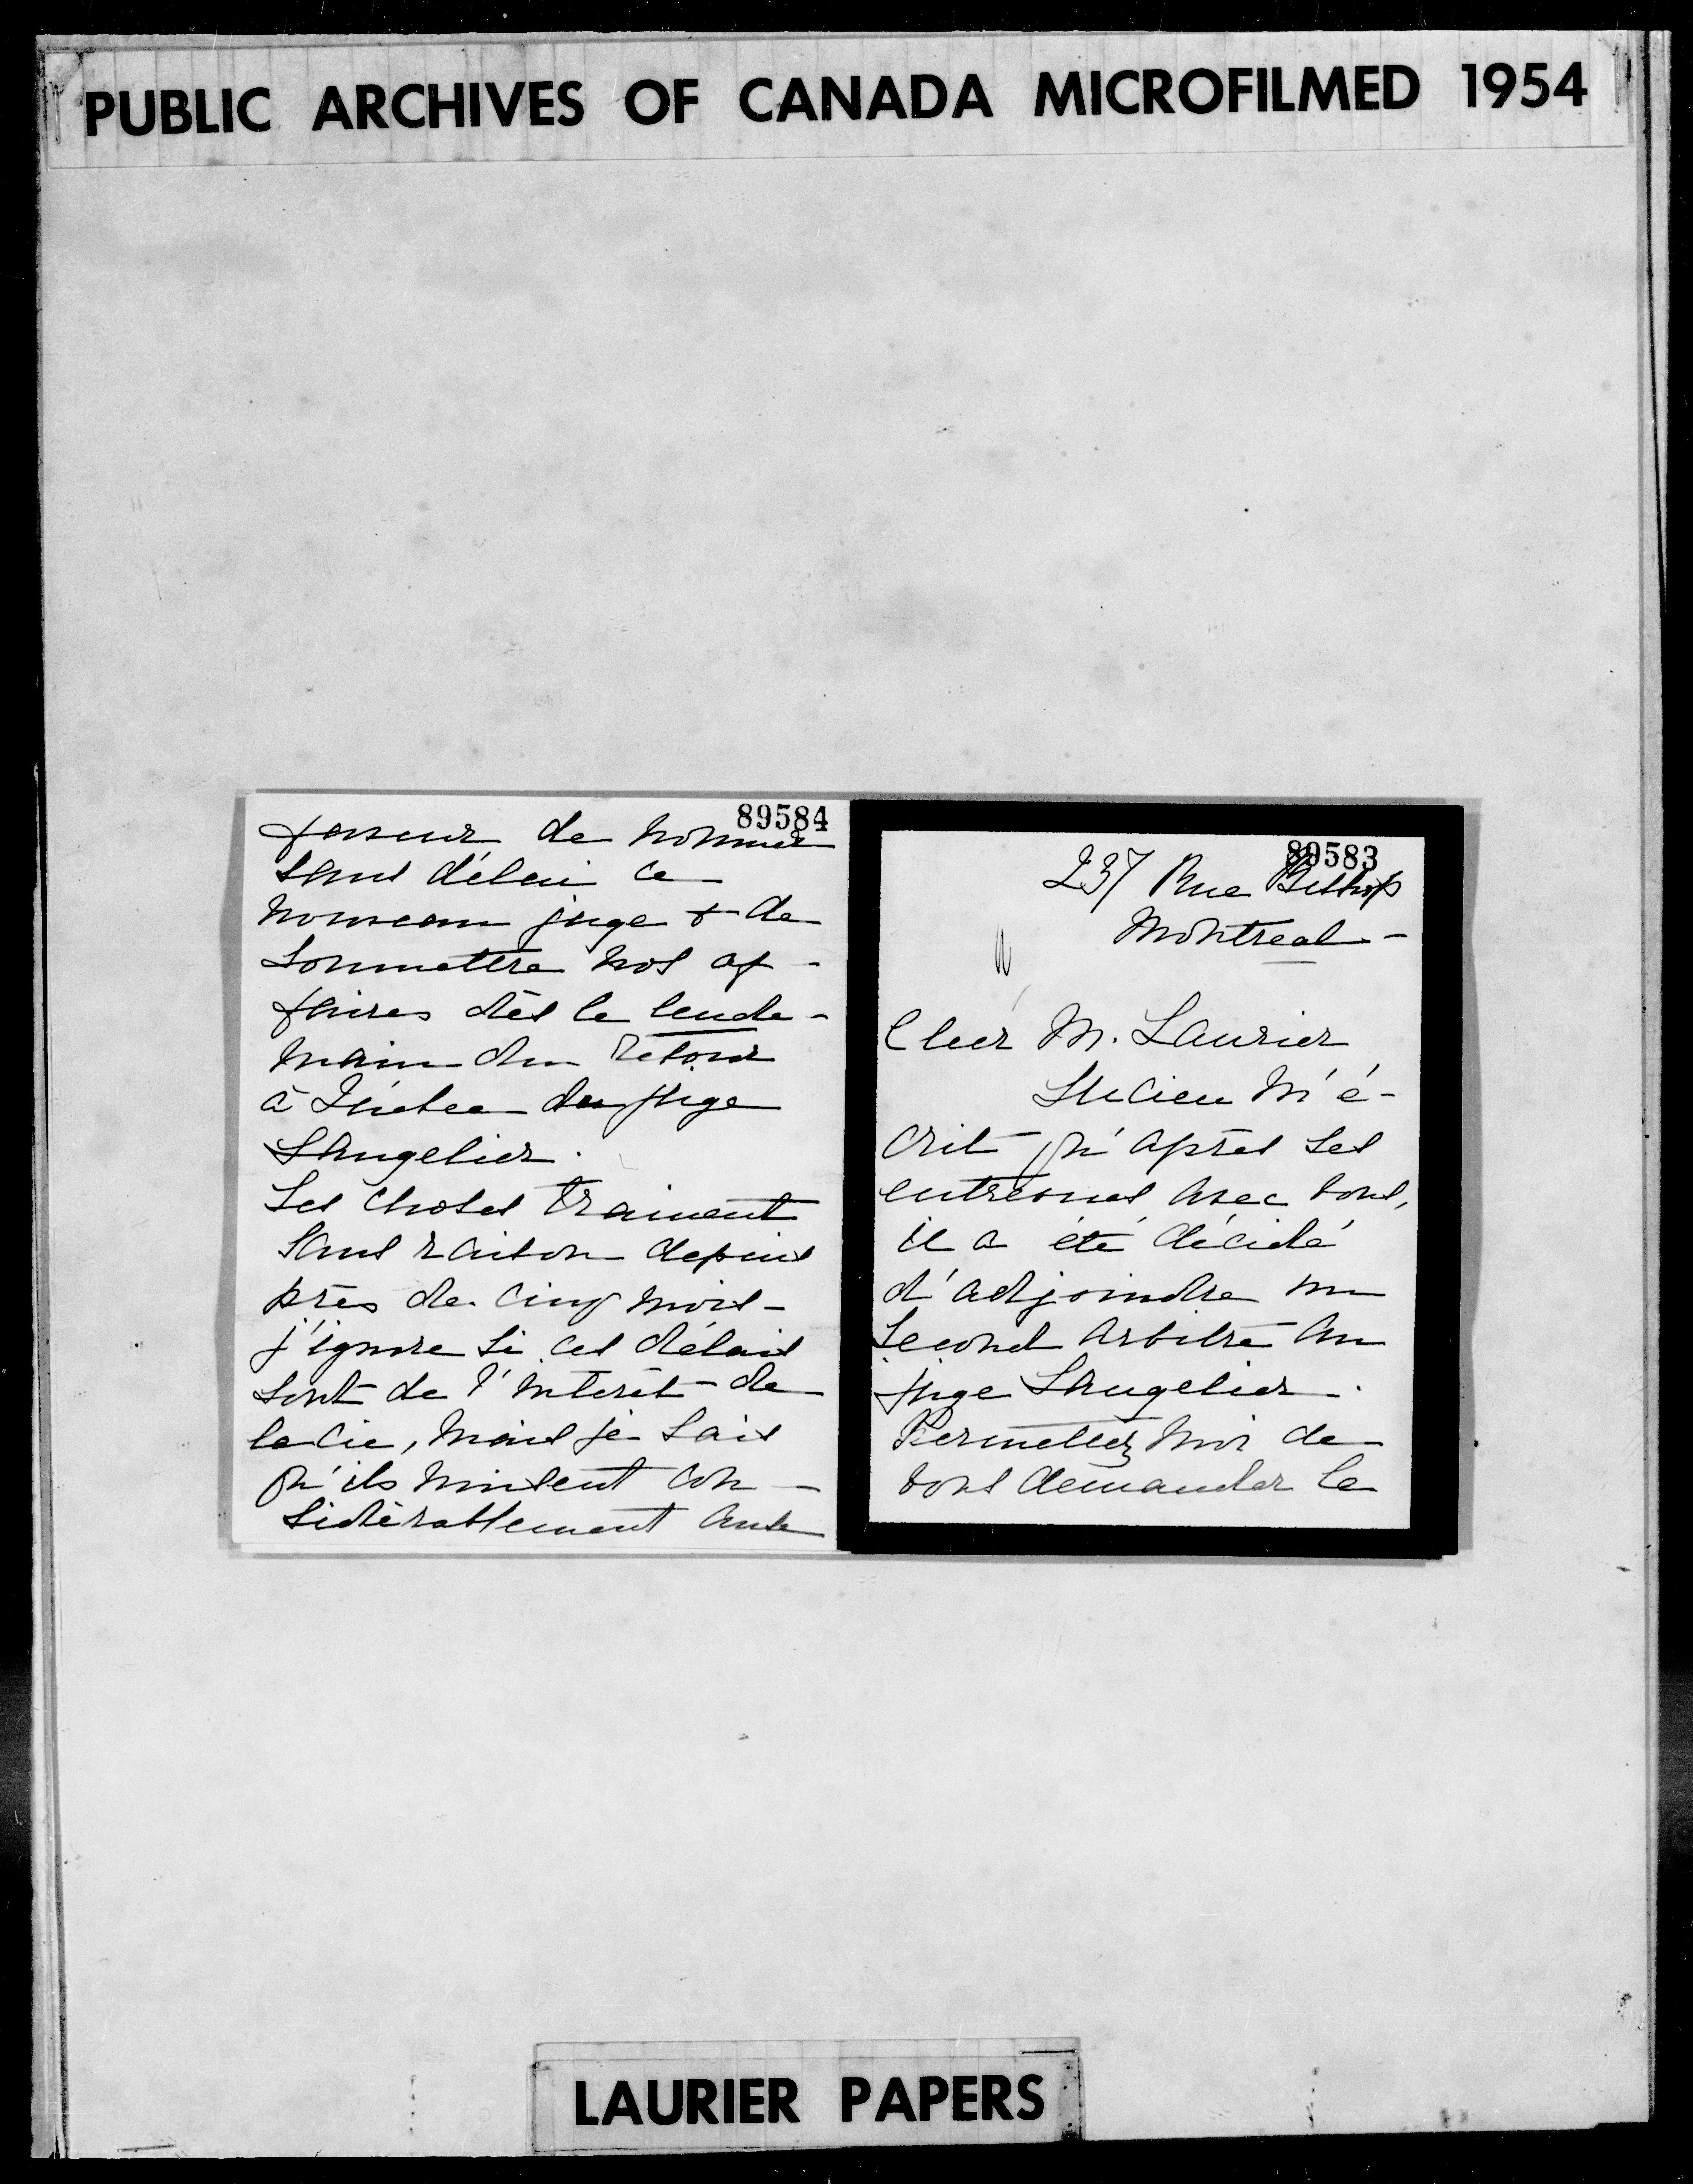 PUBLIC ARCHIVES OF CANADA MICROFILMED 1954
89583
237 Rue Bishop
Montreal -
Cher M. Laurier
Lucien m'é-
crit qu'après ses
entrevues avec vous,
il a été décidé
d'adjoindre un
second arbitre au
juge Langelier -.
Permettez moi de
vous demander la
89584
faveur de nommer
sans délai ce
nouveau juge & de
soumettre nos af-
faires dès le lende-
main du retour
à Québec du juge
Langelier.
Les choses trainent
sans raison depuis
près de cinq mois -
j'ignore si ces délais
sont de l'intérêt de
la cie, mais je sais
qu'ils nuisent con-
sidérablement aux
LAURIER PAPERS